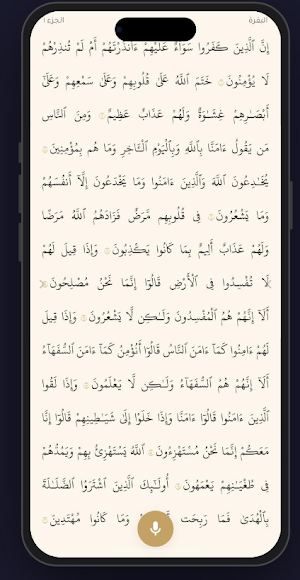 البقرة
الجزء ١
إِنَّ ٱلَّذِينَ كَفَرُوا۟ سَوَآءٌ عَلَيْهِمْ ءَأَنذَرْتَهُمْ أَمْ لَمْ تُنذِرْهُمْ
لَا يُؤْمِنُونَ خَتَمَ ٱللَّهُ عَلَىٰ قُلُوبِهِمْ وَعَلَىٰ سَمْعِهِمْ وَعَلَىٰٓ
أَبْصَـٰرِهِمْ غِشَـٰوَةٌ وَلَهُمْ عَذَابٌ عَظِيمٌ وَمِنَ ٱلنَّاسِ
مَن يَقُولُ ءَامَنَّا بِٱللَّهِ وَبِٱلْيَوْمِ ٱلْـَٔاخِرِ وَمَا هُم بِمُؤْمِنِينَ
يُخَـٰدِعُونَ ٱللَّهَ وَٱلَّذِينَ ءَامَنُوا۟ وَمَا يَخْدَعُونَ إِلَّآ أَنفُسَهُمْ
وَمَا يَشْعُرُونَ فِى قُلُوبِهِم مَّرَضٌ فَزَادَهُمُ ٱللَّهُ مَرَضًا
وَلَهُمْ عَذَابٌ أَلِيمٌۢ بِمَا كَانُوا۟ يَكْذِبُونَ وَإِذَا قِيلَ لَهُمْ
لَا تُفْسِدُوا۟ فِى ٱلْأَرْضِ قَالُوٓا۟ إِنَّمَا نَحْنُ مُصْلِحُونَ
أَلَآ إِنَّهُمْ هُمُ ٱلْمُفْسِدُونَ وَلَـٰكِن لَّا يَشْعُرُونَ وَإِذَا قِيلَ
لَهُمْ ءَامِنُوا۟ كَمَآ ءَامَنَ ٱلنَّاسُ قَالُوٓا۟ أَنُؤْمِنُ كَمَآ ءَامَنَ ٱلسُّفَهَآءُ
أَلَآ إِنَّهُمْ هُمُ ٱلسُّفَهَآءُ وَلَـٰكِن لَّا يَعْلَمُونَ وَإِذَا لَقُوا۟
ٱلَّذِينَ ءَامَنُوا۟ قَالُوٓا۟ ءَامَنَّا وَإِذَا خَلَوْا۟ إِلَىٰ شَيَـٰطِينِهِمْ قَالُوٓا۟ إِنَّا
مَعَكُمْ إِنَّمَا نَحْنُ مُسْتَهْزِءُونَ ٱللَّهُ يَسْتَهْزِئُ بِهِمْ وَيَمُدُّهُمْ
فِى طُغْيَـٰنِهِمْ يَعْمَهُونَ أُو۟لَـٰٓئِكَ ٱلَّذِينَ ٱشْتَرَوُا۟ ٱلضَّلَـٰلَةَ
بِٱلْهُدَىٰ فَمَا رَبِحَت وَمَا كَانُوا۟ مُهْتَدِينَ